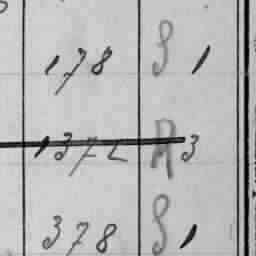 178 S 1
137L A 3
378 S 1